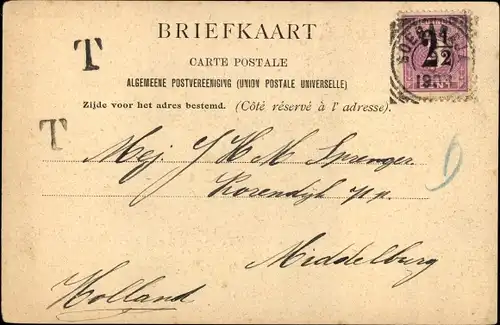 BRIEFKAART
T
CARTE POSTALE
ALGEMEENE POSTVEREENIGING (UNION POSTALE UNIVERSELLE)
Zijde voor het adres bestemd. (Côté réservé à l' adresse).
2 1/2
T
Mej. J H M Sprenger
Rozendijk
Middelburg
Holland